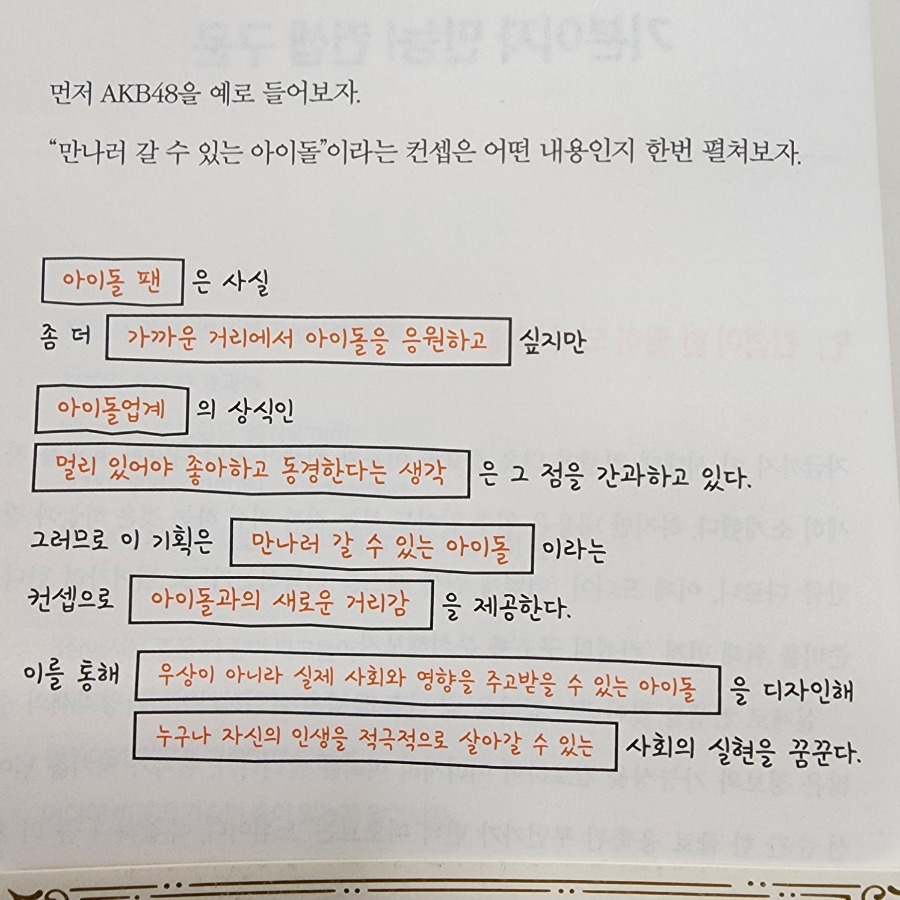 먼저 AKB48을 예로 들어보자.
“만나러 갈 수 있는 아이돌”이라는 컨셉은 어떤 내용인지 한번 펼쳐보자.
아이돌 팬 은 사실
좀 더 가까운 거리에서 아이돌을 응원하고 싶지만
아이돌업계 의 상식인
멀리 있어야 좋아하고 동경한다는 생각 은 그 점을 간과하고 있다.
그러므로 이 기획은 만나러 갈 수 있는 아이돌 이라는
컨셉으로 아이돌과의 새로운 거리감 을 제공한다.
이를 통해 우상이 아니라 실제 사회와 영향을 주고받을 수 있는 아이돌 을 디자인해
누구나 자신의 인생을 적극적으로 살아갈 수 있는 사회의 실현을 꿈꾼다.